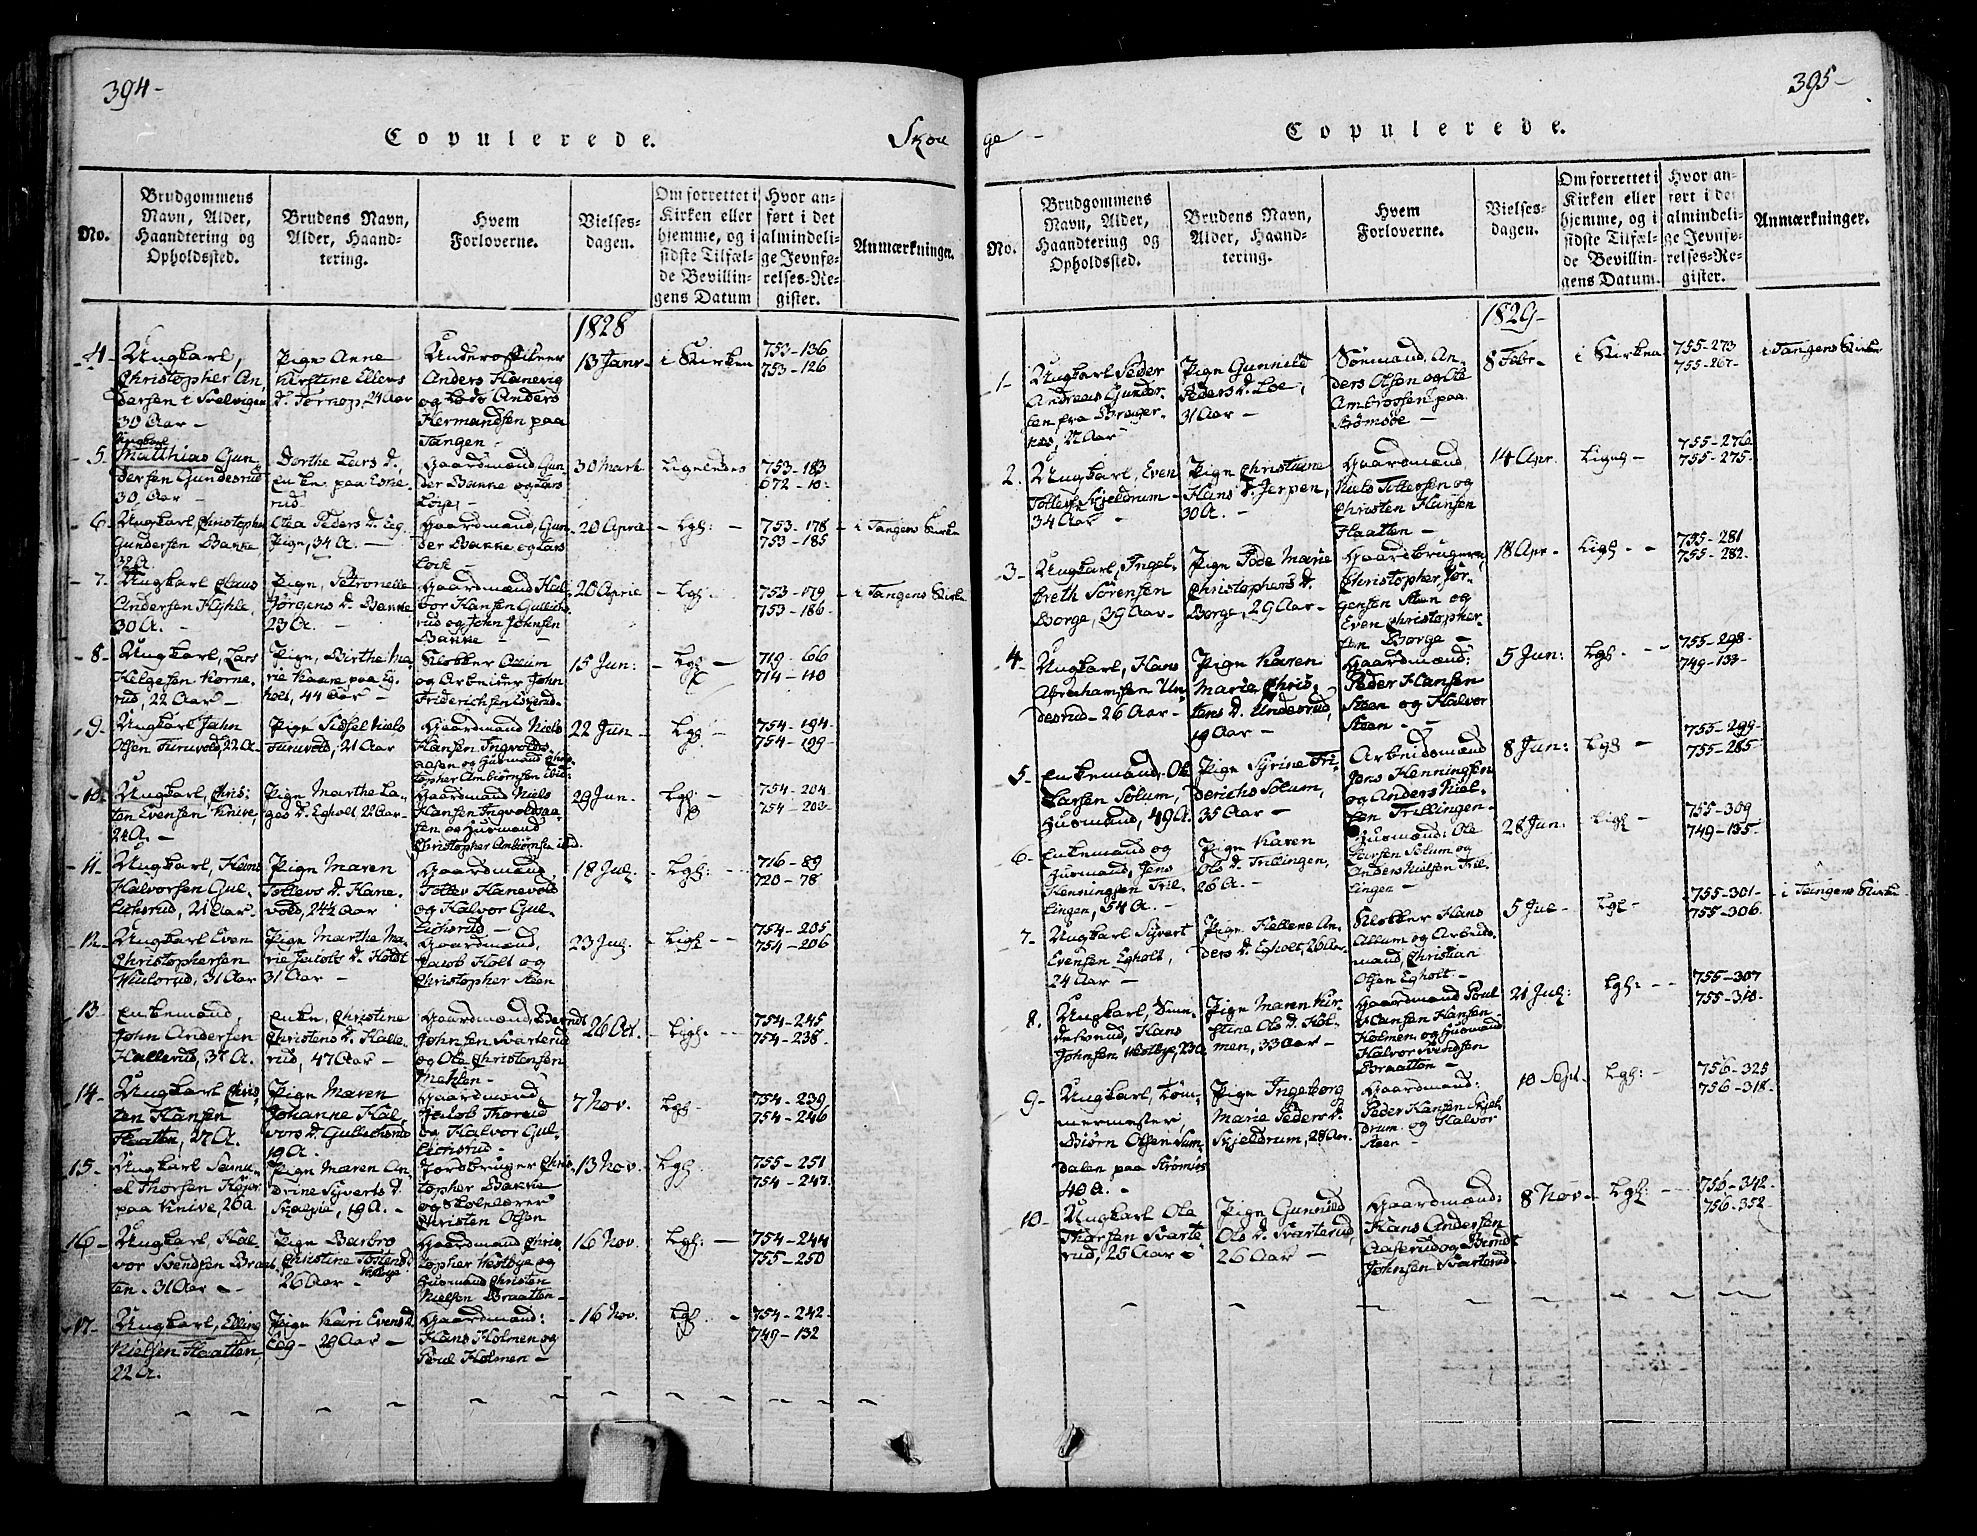 394-
Copulerede.
Skou
No.
Brudgommens
Navn, Alder,
Haandtering og
Opholdssted.
Brudens Navn,
Alder, Haand-
tering.
Hvem
Forloverne.
Vielses-
dagen.
Om forrettet i
Kirken eller
hjemme, og i
sidste Tilfæl-
de Bevillin-
gens Datum
Hvor an-
ført i det
almindeli-
ge Jevnfø-
relses-Re-
gister.
Anmærkninger.
1828
4-
Ungkarl,
Christopher An,
dersen
30 Aar -
Pige Anne
Kirstine Ellens
D. Tornop, 24 Aar
Underofficeer
Anders Hanevig
og Lods Anders
Hermandsen paa
Tangen -
13 Janr-
i Kirken
753-136
753-126
5.
Ungkarl
Matthias Gun
dersen Gundesrud
30 Aar -
Dorthe Lars D.
Enke paa
rud.
Gaardmænd Gun
der Bakke og Lars
30 Mart
Ligeledes
753-183
672-10-
6-
Ungkarl, Christopher
Gundersen Bakke
Olea Peders D. Eeg
Pige, 34 A. -
Gaardmænd, Gun
der Bakke og Lars
20 Apriil
- Lgh: -
753-178
753-185
- i Tangens Kirke
7-
Ungkarl Claus
Andersen Hyhle,
30 A. -
Pige, Petronelle
Jørgens D. Bakke
23 A. -
Gaardmænd Hal
vor Hansen Gullichs
rud og John Johnsen
Bakke -
20 Apriil
- Lgh:
753-179
753-186-
- i Tangens Kirke
8-
Ungkarl, Lars
Helgesen Korne-
rud, 22 Aar -
Pige, Birthe Ma
rie Kaare paa Eg
holt, 44 Aar -
Klokker Ollum
og Arbeider John
Friderichsen
15 Jun:
- Lgh -
719-66
714-110
9-
Ungkarl John
Olsen Furuvold, 22 A-
Pige Sidsel Niels
Furuvold, 21 Aar
Gaardmand Niels
Hansen Ingvolds
aasen og Huusmand Chris
topher Ambiørnsen ibid:
22 Jun -
Lgh -
754-194
754-199-
10-
Ungkarl, Chris:
ten Evensen Knive,
24 A. -
Pige Marthe La-
ges D. Egholt, 22 Aar-
Gaardmand Niels
Hansen Ingvoldsaa-
sen og Huusmand
Christopher Ambiørnsen ibid.
29 Jun.
Lgh -
754-204
754-203-
11-
Ungkarl, Hans
Halvorsen Gul,
lichsrud, 21 Aar
Pige Maren
Tollevs D. Hane-
vold, 24½ Aar
Gaardmænd,
Tollev Hanevold
og Halvor Gul-
lichsrud -
18 Julj.
- Lgh: -
716-89
720-78
12-
Ungkarl Even
Christophersen
31 Aar
Pige Marthe Ma-
rie Jacobs D. Holdt
31 Aar -
Gaardmænd,
Jacob Holt og
Christopher Steen
23 Julj.
- Ligh -
754-205
754-206
13.
Enkemand,
John Andersen
Hallerud, 37 A.
Enke, Christine
Christens D. Halle-
rud, 47 Aar -
Gaardmænd, Berndt
Johnsen Svarterud
og Ole Christensen
26 Oct.
- Ligh: -
754-245
754-238-
14-
Ungkarl Chris,
ten Hansen
Haatten, 27 A.
Pige Maren
Johanne Hal-
vors D. Gullichsrud
19 A.
Gaardmænd
Jacob Thorud
og Halvor Gul-
lichsrud -
7 Nov.
Lgh -
754-239
754-246
15-
Ungkarl Samu-
el Thorsen
paa Knive, 26 A
Pige Maren An
drine Syverts D.
19 A. -
Jordbruger Chris
topher Bakke
og Skolelærer
Christen Olsen
13 Nov.
- Lgh -
755-251
754-247.
16-
Ungkarl, Hal-
vor Svendsen Braat,
ten - 31 Aar -
Pige Barbro
Christine Tostens D.
Vestbye
26 Aar -
Gaardmand Chris-
topher Westbye og
Huusmand Christen
Nielsen Braatten -
16 Nov.
- Lgh: -
754-244
755-250
17-
Ungkarl, Elling
Nielsen Haatten,
22 A.
Pige Kari Evens D.
Eeg - 29 Aar -
Gaardmænd:
Hans Holmen og
Poul Holmen -
- 16 Nov.
Lgh -
754-242-
749-132
395-
Copulerede.
ge -
No.
Brudgommens
Navn, Alder,
Haandtering og
Opholdssted.
Brudens Navn,
Alder, Haand-
tering.
Hvem
Forloverne.
Vielses-
dagen.
Om forrettet i
Kirken eller
hjemme, og i
sidste Tilfæl-
de Bevillin-
gens Datum.
Hvor an-
ført i det
almindeli-
ge Jevnfø-
relses-Re-
gister.
Anmærkninger.
1829-
1-
Ungkarl Peder
Andreas Gunder-
sen fra Brager-
næs, 22 Aar -
Pige Gunnild
Peders D. Loe,
31 Aar -
Sømænd, An-
ders Olsen og Ole
Ambrossen paa
Strømsøe -
8 Febr-
i Kirken
755-273
755-267-
i Tangens Kirke
2.
Ungkarl, Even
Tollefs: Skjeldrum -
34 Aar -
Pige Christiane
Hans D. Jerpen,
30 A. -
Gaardmænd,
Niels Tollefsen og
Christen Hansen
Haatten -
14 Apr.
Ligel -
755-276
755-275-
3-
Ungkarl, Ingel-
breth Sørensen
Borge, 39 Aar -
Pige Tode Marie
Christophers D.
Borge, 29 Aar -
Gaardbrugerne,
Christopher Jør-
gensen Steen og
Even Christopher-
sen Borge -
18 Apr -
Ligh - -
755-281
755-282-
4-
Ungkarl, Hans
Abrahamsen Un-
desrud - 26 Aar -
Pige Karen
Marie Chris-
tens D. Undesrud,
19 Aar -
Gaardmænd:
Peder Hansen
Steen og Halvor
Steen -
5 Jun:
Lgh - -
755-298-
749-133-
5-
Enkemand, Ole
Larsen Solum,
Huusmand, 49 A.
Pige Syrine Fri-
derichs Solum,
35 Aar -
Arbeidsmænd
Jens Henningsen
og Anders Niel-
sen Trillingen-
8 Jun:
Lgh -
755-299-
755-285-
6-
Enkemand og
Huusmand, Jens
Henningsen Tril-
lingen, 54 A. -
Pige Karen
Ols D. Trillingen,
26 A. -
Huusmænd: Ole
Larsen Solum og
Anders Nielsen Tril-
lingen -
28 Jun:
Ligh -
755-309
749-135-
7-
Ungkarl Sÿvert
Evensen Egholt,
24 Aar -
Pige Hellene An-
ders D. Egholt, 26 Aar
Klokker Hans
Allum og Arbeids-
mand, Christian
Olsen Egholt -
5 Jul -
Lgh -
755-301-
755-306-
- i Tangens Kirke
8.
Ungkarl,
Hans
Johnsen Vestbye, 23 A
Pige Maren Kir-
stine Ols D. Hol-
men, 33 Aar -
Gaardmand Poul
Hansen
Holmen og Huusmand
Halvor Svendsen
Braatten -
21 Julj:
Lgh: - -
755-307
755-310-
9-
Ungkarl, Tøm-
mermester,
Biørn Olsen Sum-
dalen paa Strømsøe
40 A. -
Pige Ingeborg
Marie Peders D.
Skjeldrum, 28 Aar.
Gaardmænd:
Peder Hansen Skjel
drum. og Halvor
Steen -
10 Sept.
Lgh: -
756-325
756-318-
10-
Ungkarl Ole
Thorsen Svarte-
rud, 25 Aar -
Pige Gunnild
Ols D. Svarterud,
26 Aar -
Gaardmænd:
Hans Andersen
Aaserud og Berndt
Johnsen Svarterud.
8 Nov -
Lgh: -
756-342-
756-352-